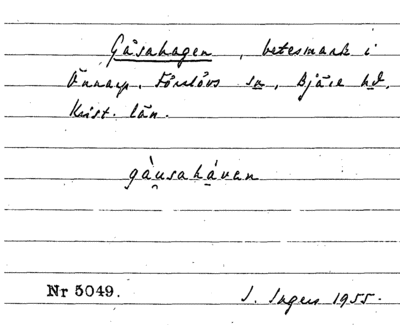 Gåsahagen, betesmark i
Önnarp, Förslövs sn, Bjäre hd,
Krist. län.
gàu̯sahávan
Nr 5049.
I. Ingers 1955.